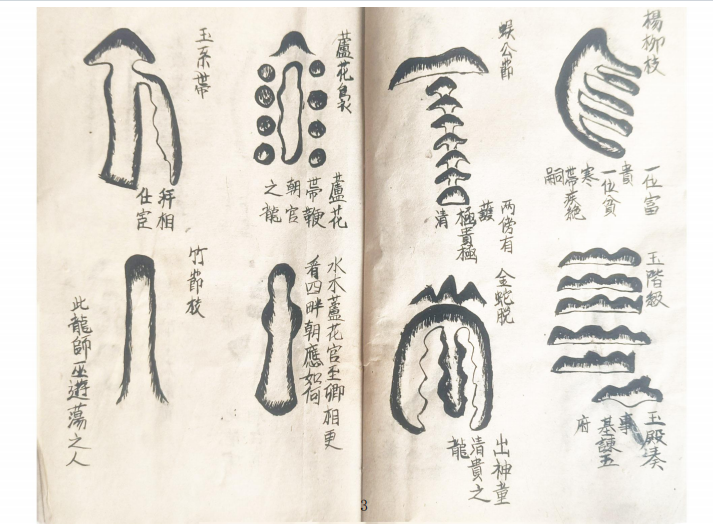 楊柳枝
一位富
貴
一位貧
寒
帶疾絕
嗣
蜈公節
兩傍有
護
極貴極
清
玉階級
玉殿湊
事
基諫五
府
金蛇脫
出神童
清貴之
龍
蘆花裊
蘆花
帶鞭
朝官
之龍
玉系帶
相
仕宦
水木蘆花官至卿相更
看四畔朝應如何
竹節枝
此龍師巫遊蕩之人
3